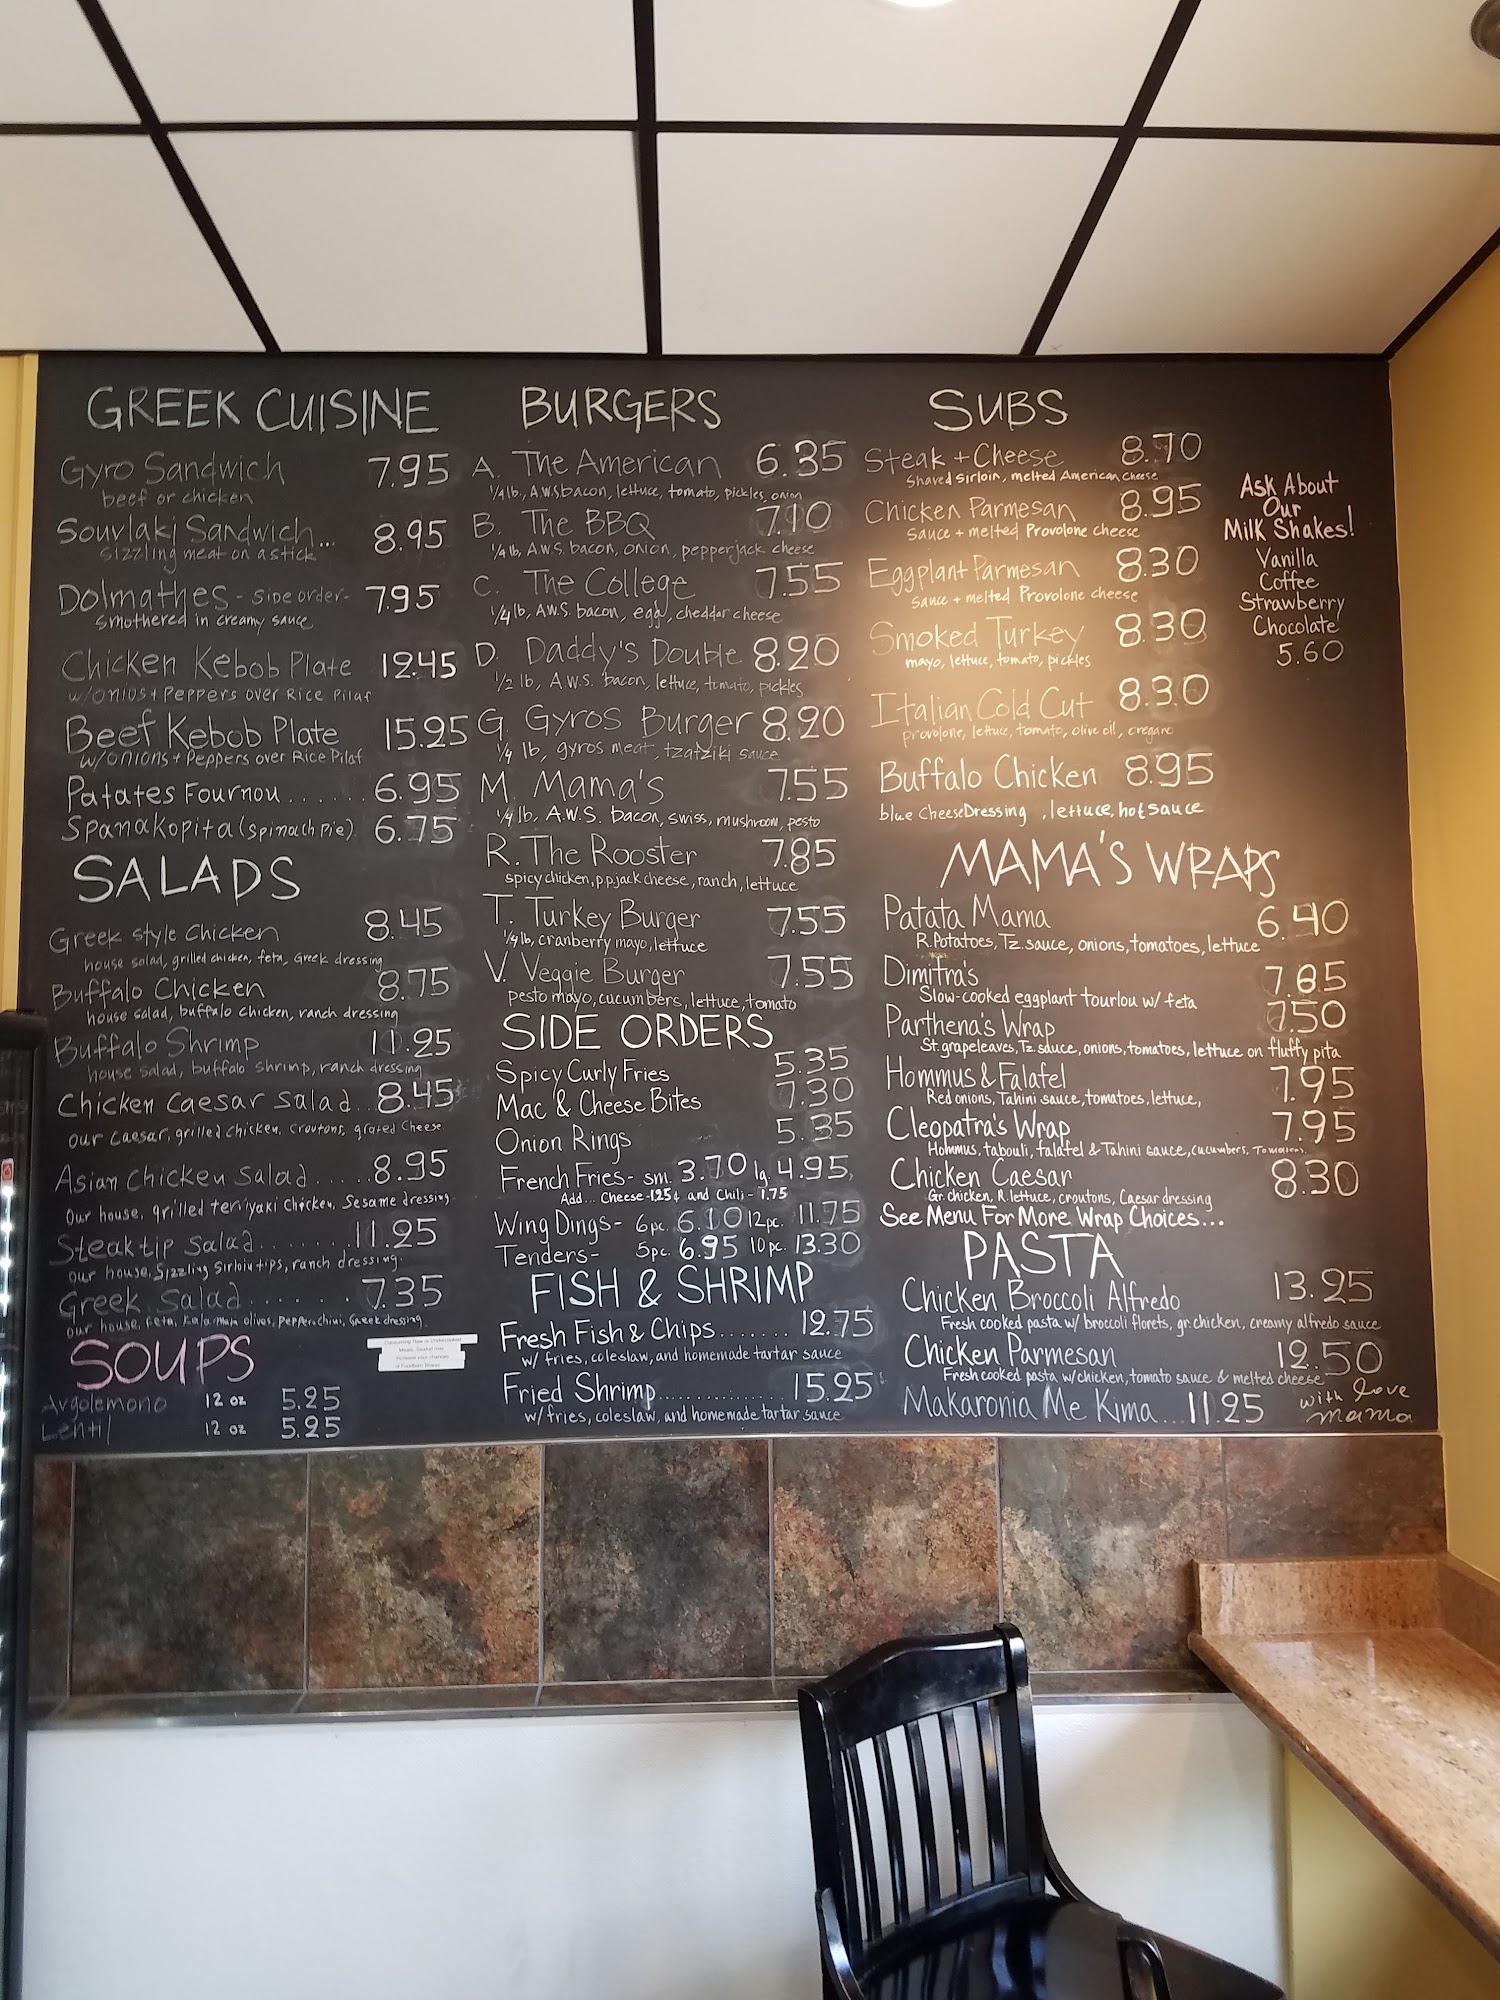 GREEK CUISINE
Gyro Sandwich 7.95
beef or chicken
Souvlaki Sandwich... 8.95
sizzling meat on a stick
Dolmathes - side order- 7.95
smothered in creamy sauce
Chicken Kebob Plate 12.45
w/onios + Peppers over Rice Pilaf
Beef Kebob Plate 15.25
w/onions + Peppers over Rice Pilaf
Patates Fournou...... 6.95
Spanakopita (spinach pie) 6.75
SALADS
Greek style chicken 8.45
house salad, grilled chicken, feta, Greek dressing
Buffalo Chicken 8.75
house salad, buffalo chicken, ranch dressing
Buffalo Shrimp 11.25
house salad, buffalo shrimp, ranch dressing
Chicken Caesar Salad.. 8.45
our caesar, grilled chicken, croutons, grated cheese
Asian Chicken Salad..... 8.95
our house, grilled teriyaki chicken, Sesame dressing
Steak tip Salad........ 11.25
our house, Sizzling Sirloin tips, ranch dressing
Greek Salad....... 7.35
our house, feta, olives, Greek dressing
SOUPS
Avgolemono 12 oz 5.25
Lentil 12 oz 5.25
BURGERS
A. The American 6.35
1/4 lb., A.W.S bacon, lettuce, tomato, pickles, onion
B. The BBQ 7.10
1/4 lb, A.W.S. bacon, onion, pepperjack cheese
C. The College 7.55
1/4 lb, A.W.S. bacon, egg, cheddar cheese
D. Daddy's Double 8.20
1/2 lb, A.W.S. bacon, lettuce, tomato, pickles
G. Gyros Burger 8.20
1/4 lb, gyros meat, tzatziki sauce
M. Mama's 7.55
1/4 lb, A.W.S. bacon, swiss, mushroom, pesto
R. The Rooster 7.85
spicy chicken, p.p.jack cheese, ranch, lettuce
T. Turkey Burger 7.55
1/4 lb, cranberry mayo, lettuce
V. Veggie Burger 7.55
pesto mayo, cucumbers, lettuce, tomato
SIDE ORDERS
Spicy Curly Fries 5.35
Mac & Cheese Bites 7.30
Onion Rings 5.35
French Fries- sm. 3.70 lg. 4.95
Add... Cheese-1.25¢ and Chili-1.75
Wing Dings- 6pc. 6.10 12pc. 11.75
Tenders- 5pc. 6.95 10pc. 13.30
FISH & SHRIMP
Fresh Fish & Chips....... 12.75
w/ fries, coleslaw, and homemade tartar sauce
Fried Shrimp............ 15.25
w/ fries, coleslaw, and homemade tartar sauce
SUBS
Steak + Cheese 8.70
Shaved Sirloin, melted American Cheese
Chicken Parmesan 8.95
Sauce + melted Provolone cheese
Eggplant Parmesan 8.30
Sauce + melted Provolone cheese
Smoked Turkey 8.30
mayo, lettuce, tomato, pickles
Italian Cold Cut 8.30
provolone, lettuce, tomato, olive oil, oregano
Buffalo Chicken 8.95
blue Cheese Dressing, lettuce, hot sauce
Ask About
Our
Milk Shakes!
Vanilla
Coffee
Strawberry
Chocolate
5.60
MAMA'S WRAPS
Patata Mama 6.40
R.Potatoes, Tz.sauce, onions, tomatoes, lettuce
Dimitra's
Slow-cooked eggplant tourlou w/ feta
Parthena's Wrap 7.50
St.grapeleaves, Tz.sauce, onions, tomatoes, lettuce on fluffy pita
Hommus & Falafel 7.95
Red onions, Tahini sauce, tomatoes, lettuce,
Cleopatra's Wrap 7.95
Hommus, tabouli, falafel & Tahini sauce, cucumbers, Tomatoes
Chicken Caesar 8.30
Gr.chicken, R.lettuce, croutons, Caesar dressing
See Menu For More Wrap Choices...
PASTA
Chicken Broccoli Alfredo 13.25
Fresh cooked pasta w/ broccoli florets, gr.chicken, creamy alfredo sauce
Chicken Parmesan 12.50
Fresh cooked pasta w/chicken, tomato sauce & melted cheese
Makaronia Me Kima... 11.25
with love
mama